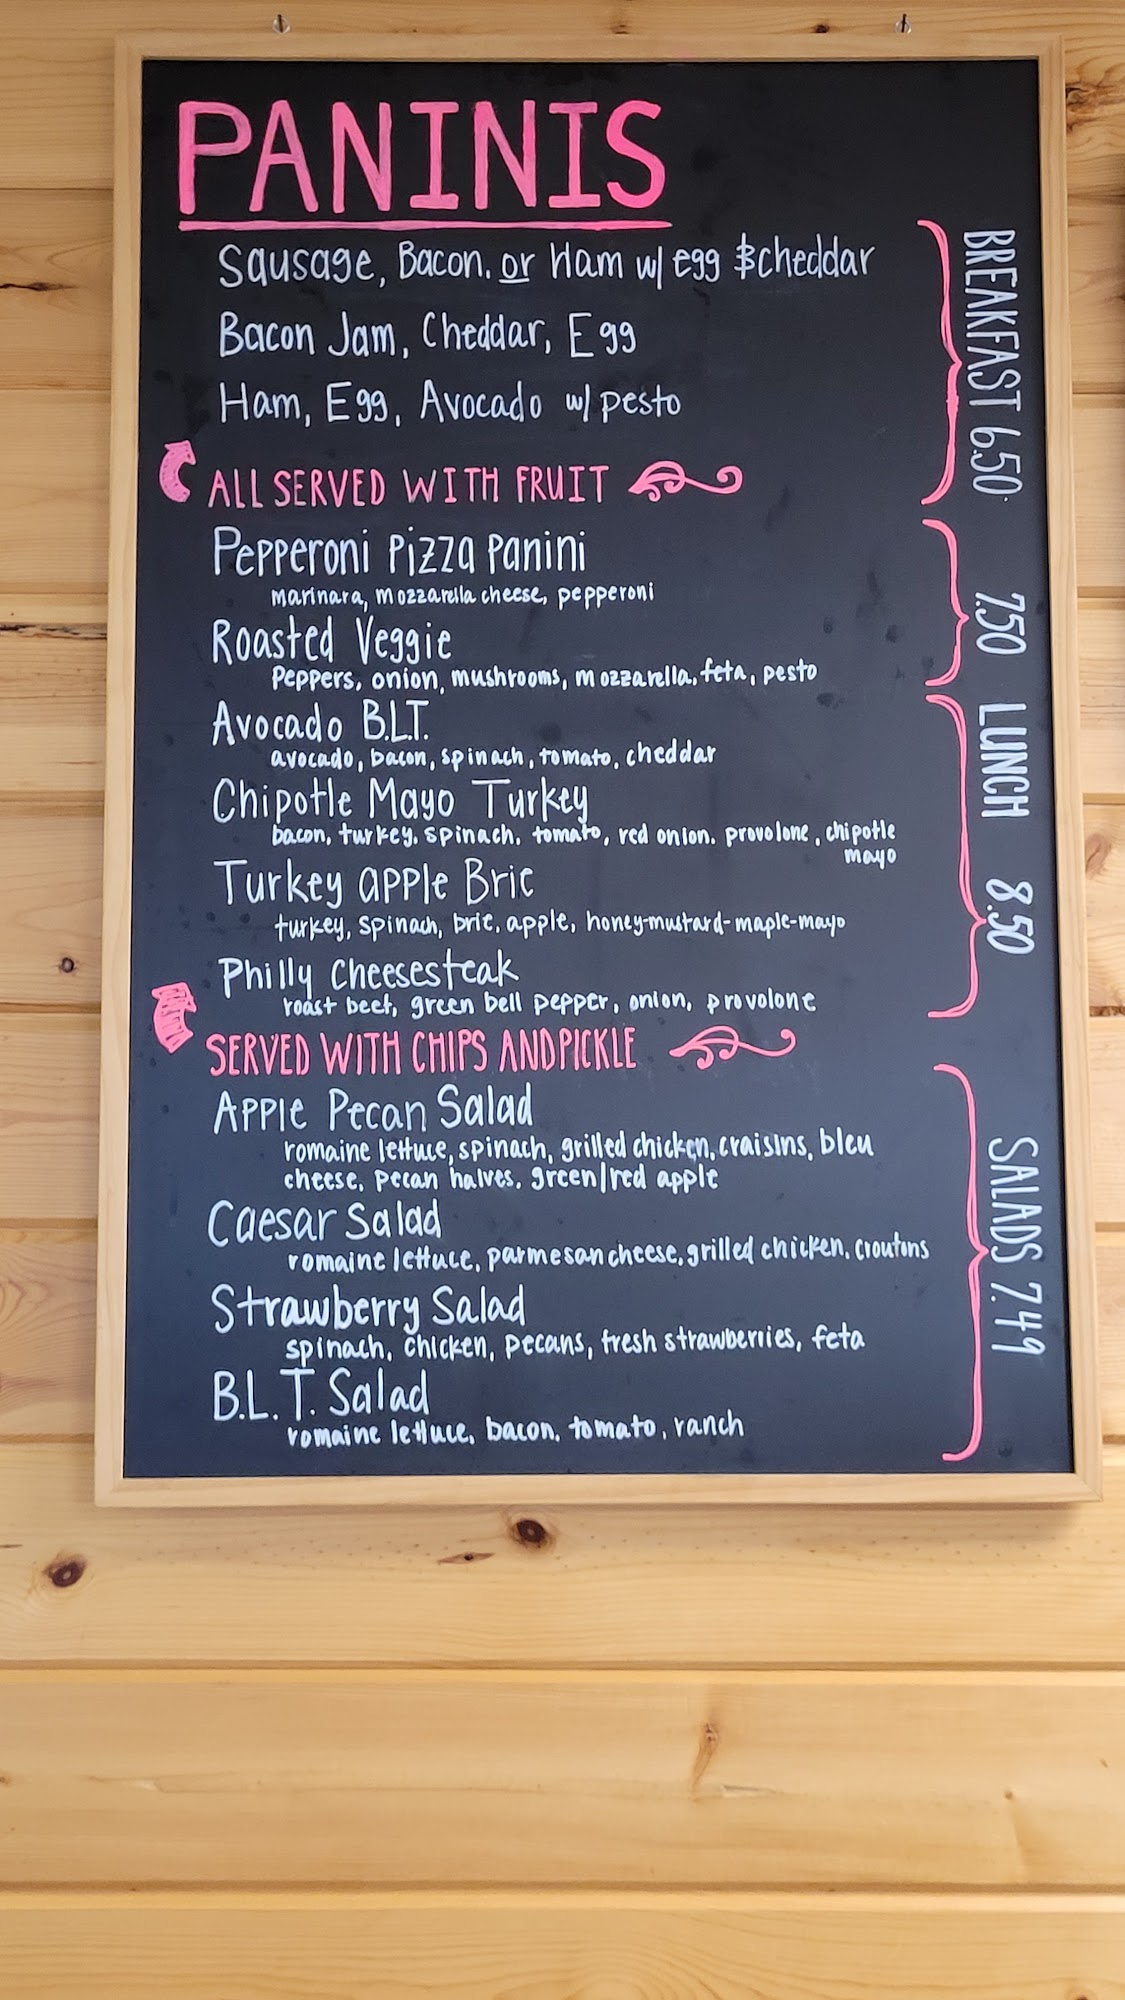 PANINIS
Sausage, Bacon, or Ham w/ egg & cheddar
Bacon Jam, Cheddar, Egg
Ham, Egg, Avocado w/ pesto
ALL SERVED WITH FRUIT
BREAKFAST 6.50
Pepperoni Pizza Panini
marinara, mozzarella cheese, pepperoni
Roasted Veggie
Peppers, onion, mushrooms, mozzarella, feta, pesto
7.50
Avocado B.L.T.
avocado, bacon, spinach, tomato, cheddar
Chipotle Mayo Turkey
bacon, turkey, spinach, tomato, red onion, provolone, chipotle
mayo
Turkey apple Brie
turkey, spinach, brie, apple, honey-mustard-maple-mayo
Philly Cheesesteak
roast beef, green bell pepper, onion, provolone
LUNCH 8.50
SERVED WITH CHIPS AND PICKLE
Apple Pecan Salad
romaine lettuce, spinach, grilled chicken, craisins, bleu
cheese, pecan halves, green/red apple
Caesar Salad
romaine lettuce, parmesan cheese, grilled chicken, croutons
Strawberry Salad
spinach, chicken, pecans, fresh strawberries, feta
B.L.T. Salad
romaine lettuce, bacon, tomato, ranch
SALADS 7.49